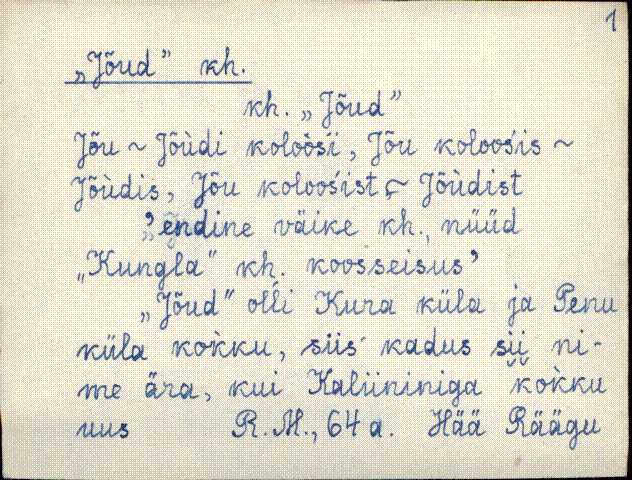 1
„Jõud” kh.
kh. „Jõud”
Jõu ~ Jõùdi koloòśi, Jõu koloośis ~
Jõùdis, Jõu koloośist ~ Jõùdist
’endine väike kh., nüüd
„Kungla” kh. koosseisus’
„Jõud” olli Kura küla ja Penu
küla kok̀ku, siis kadus sii ni-
me ära, kui Kaliininiga kok̀ku
uus R. M., 64 a. Hää Räägu